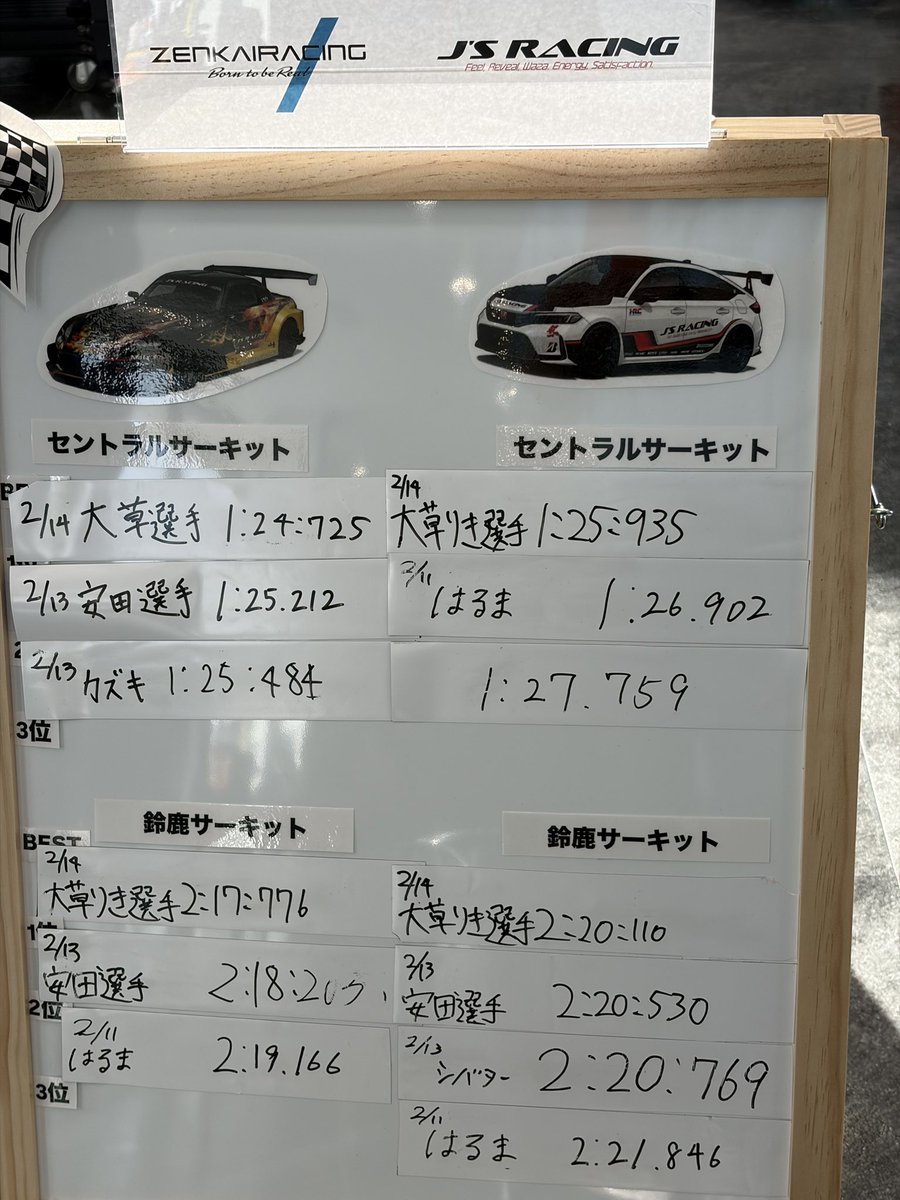 ZENKAIRACING
Born to be Real
J'S RACING
Feel, Reveal, Waza, Energy, Satisfaction.
J'S RACING
HRC
J'S RACING
セントラルサーキット
2/14 大草選手 1:24:725
2/13 安田選手 1:25.212
2/13 カズキ 1:25:484
3位
セントラルサーキット
2/14
大草りき選手 1:25:935
2/11
はるま 1:26.902
1:27.759
鈴鹿サーキット
BEST
2/14
大草りき選手 2:17:776
2/13
安田選手 2:18:
2位
2/11
はるま 2:19.166
3位
鈴鹿サーキット
2/14
大草りき選手 2:20:110
2/13
安田選手 2:20:530
2/13
シバター 2:20:769
2/11
はるま 2:21.846